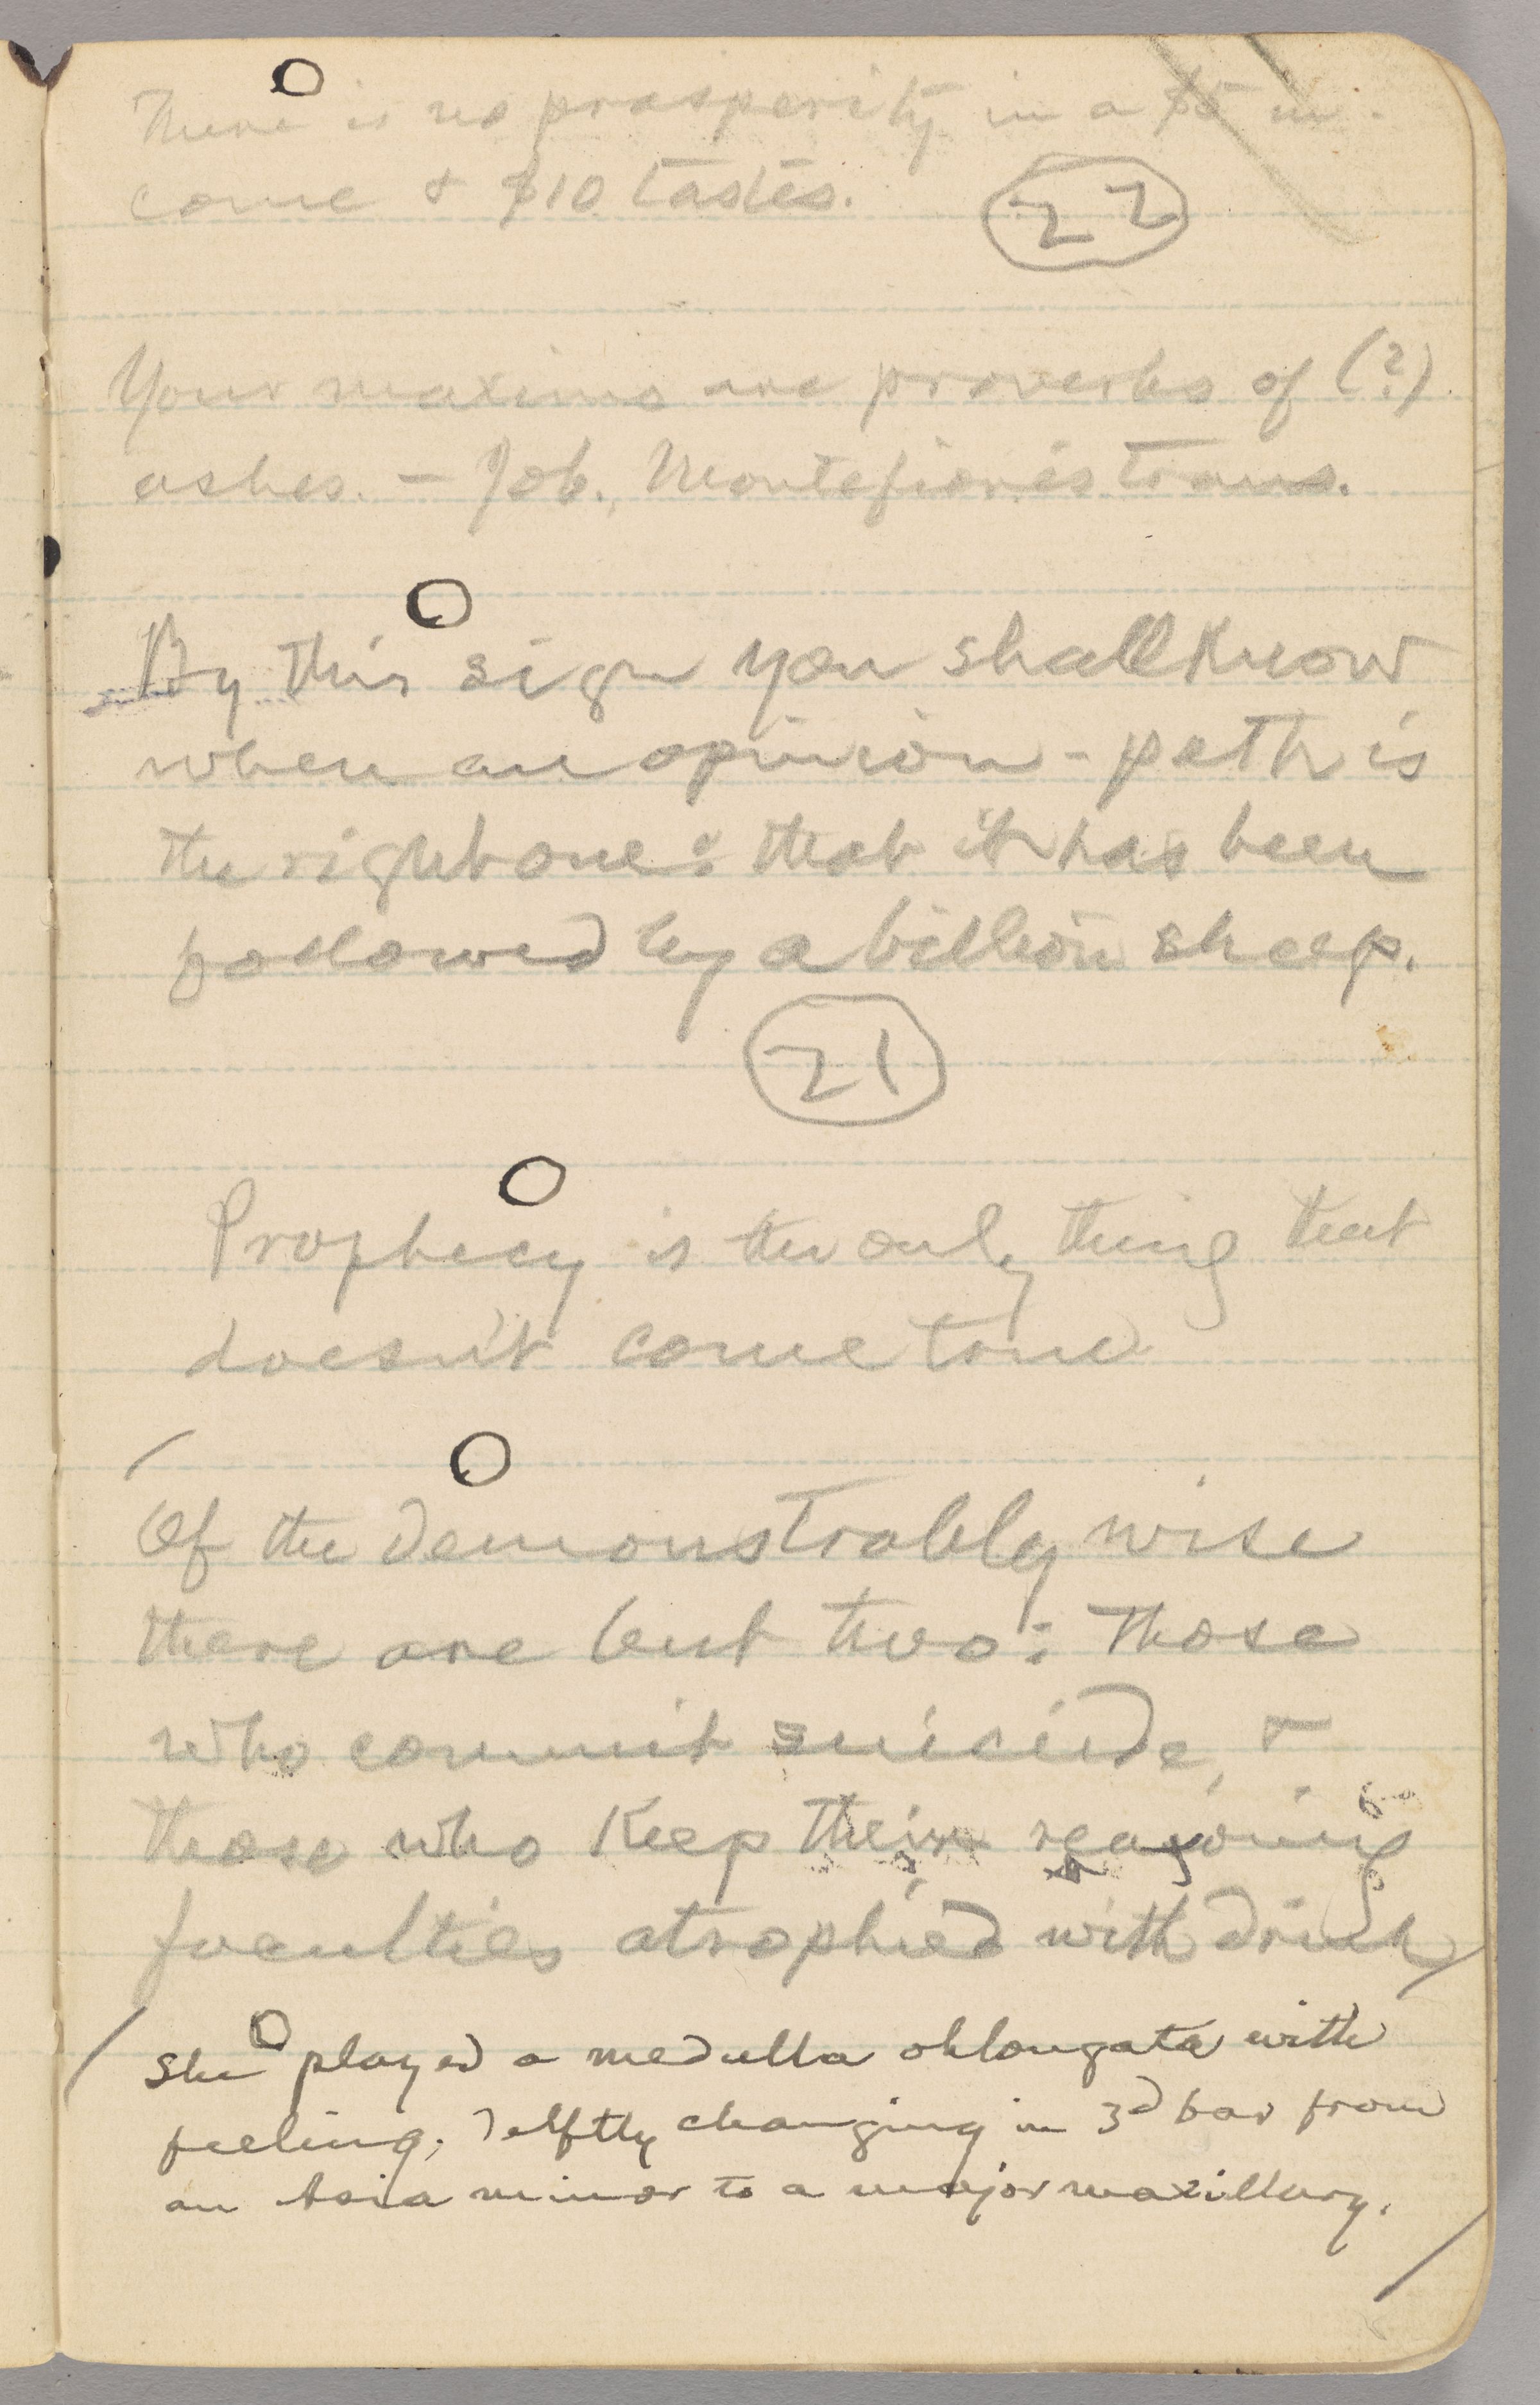 There is no prosperity in a $5 in-
come & $10 tastes.
22
Your maxims are proverbs of (?)
ashes. — Job, Montefiore's trans.
By this sign you shall know
when an opinion-path is
the right one: that it has been
followed by a billion sheep.
21
Prophecy is the only thing that
doesn't come true
Of the demonstrably wise
there are but two: those
who commit suicide, &
those who keep their reasoning
faculties atrophied with drink
She played a medulla oblongata with
feeling, delftly changing in 3d bar from
an Asia minor to a major maxillary.